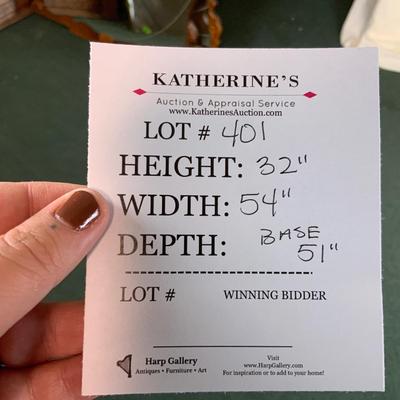 KATHERINE'S
Auction & Appraisal Service
www.KatherinesAuction.com
LOT # 401
HEIGHT: 32"
WIDTH: 54"
DEPTH: BASE 51"
LOT # WINNING BIDDER
Visit
Harp Gallery www.HarpGallery.com
Antiques • Furniture • Art For inspiration or to add to your home!